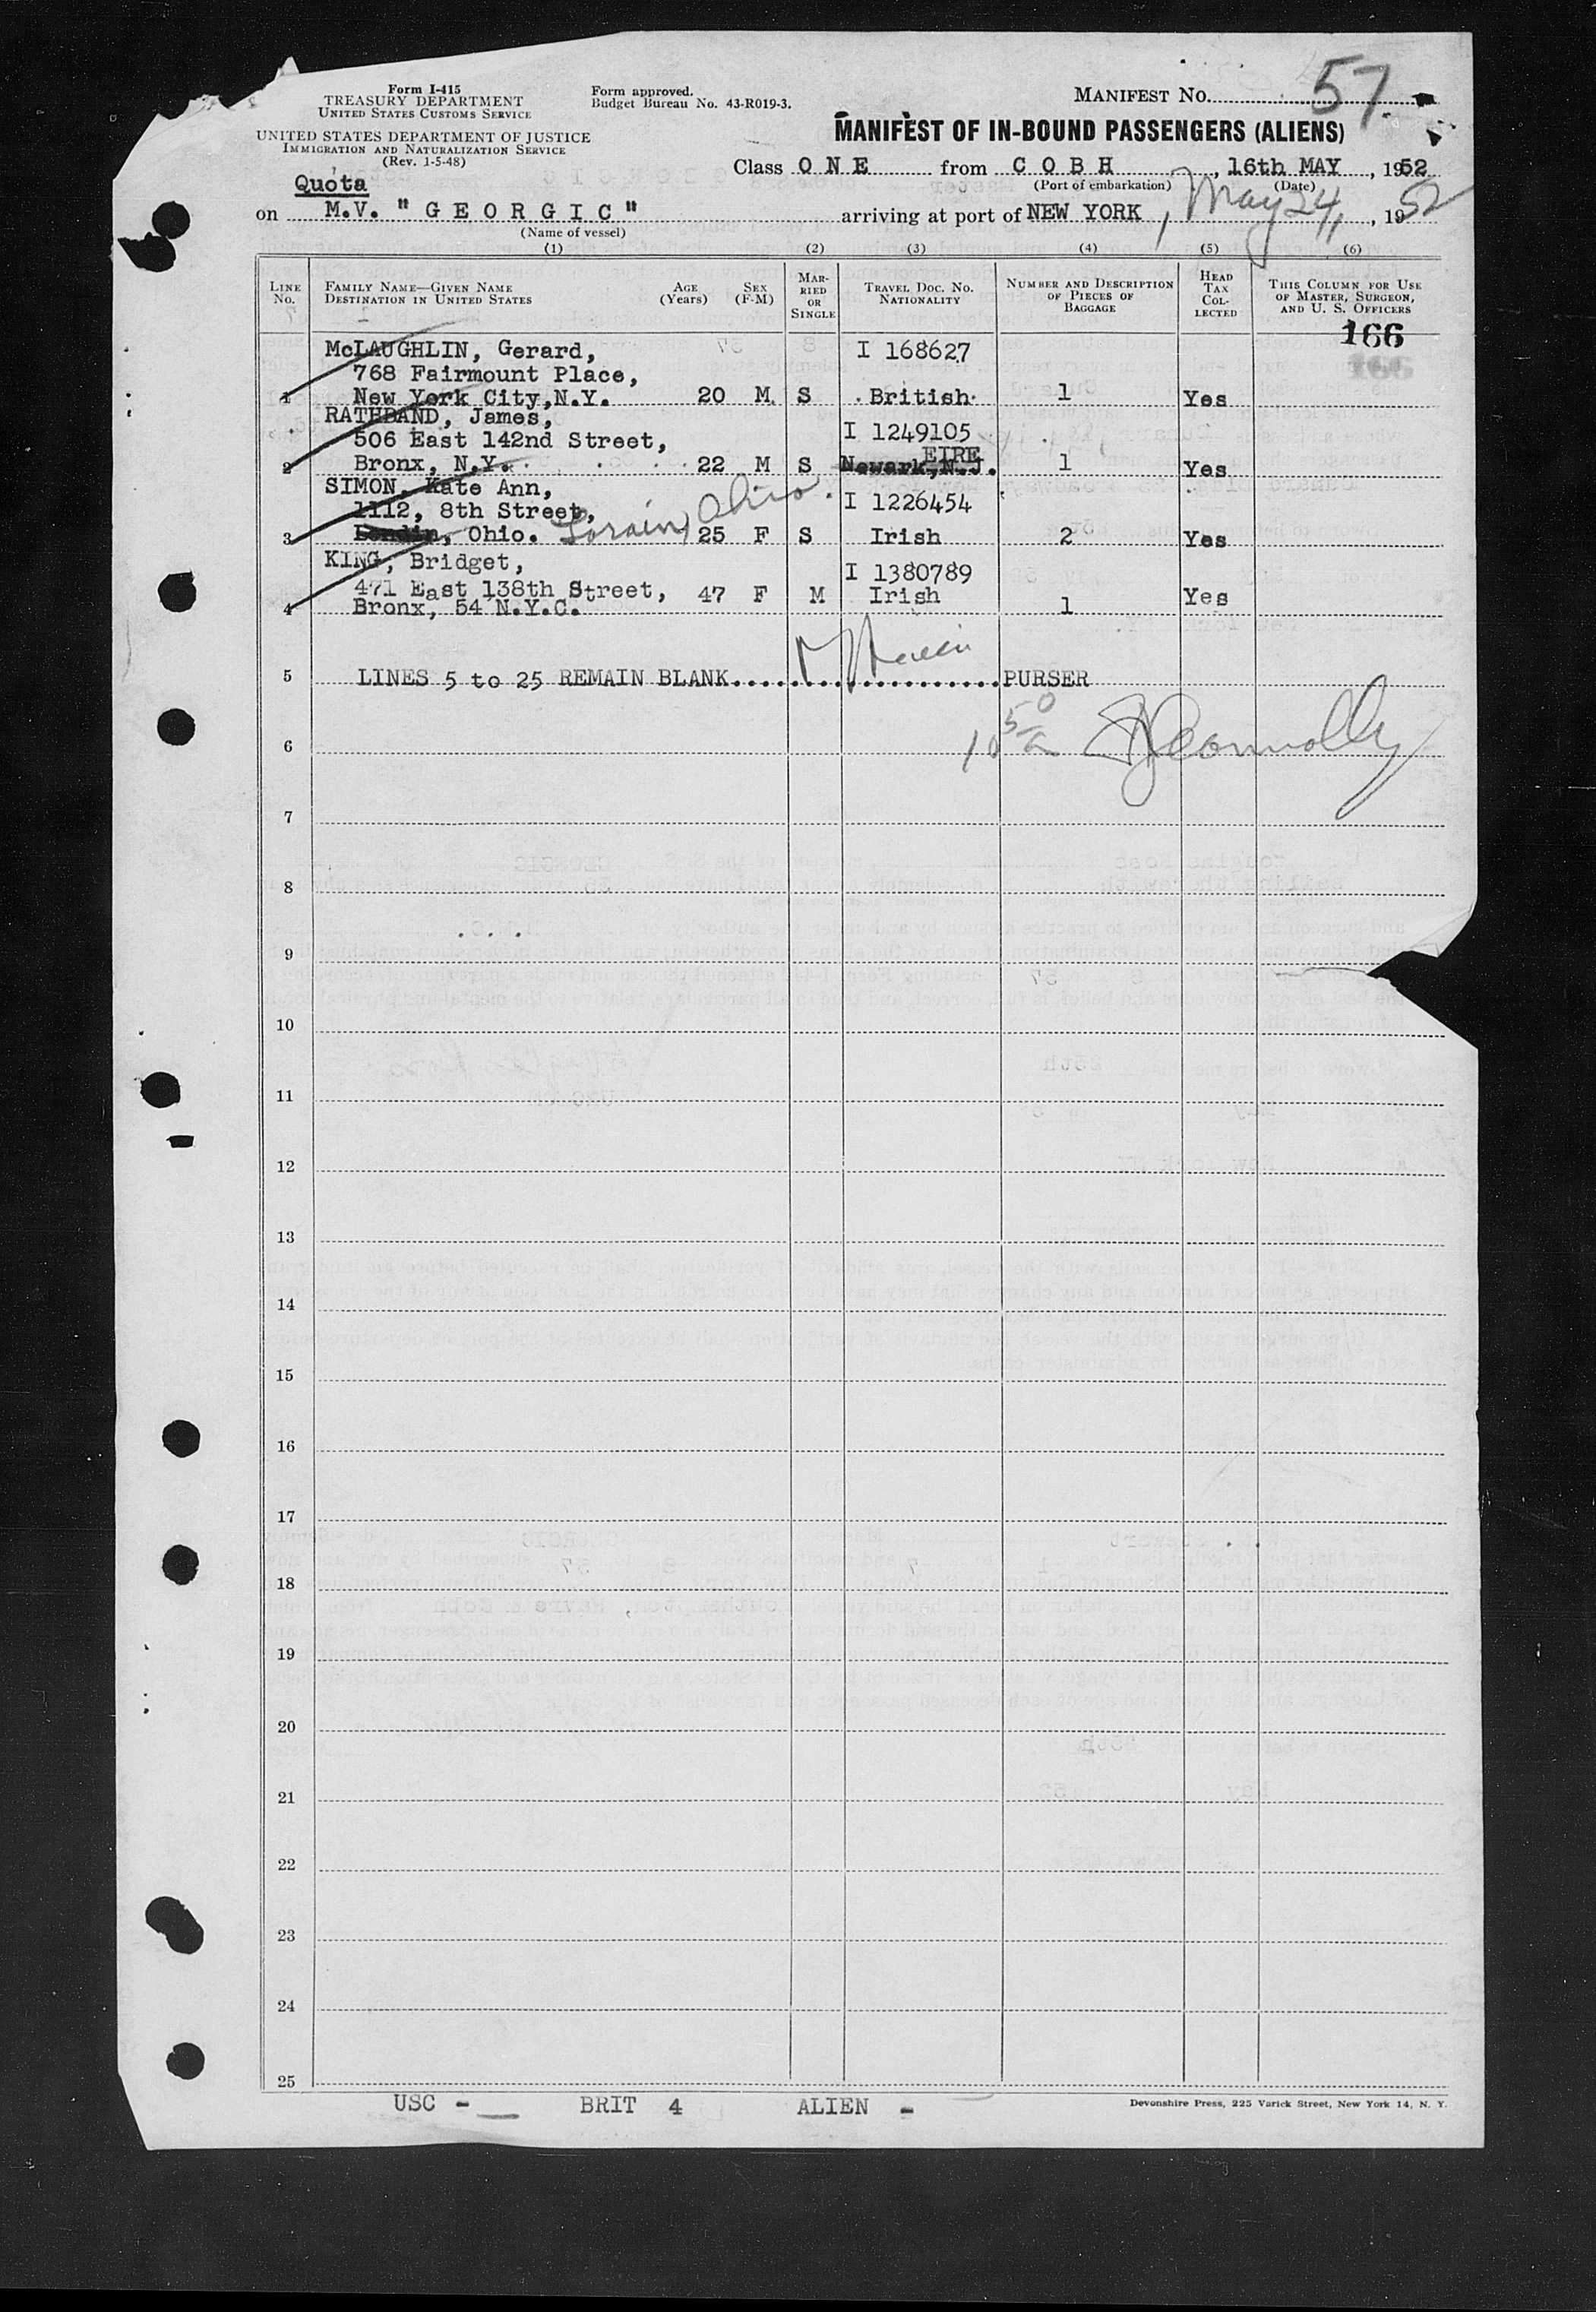 Form I-415
TREASURY DEPARTMENT
UNITED STATES CUSTOMS SERVICE
UNITED STATES DEPARTMENT OF JUSTICE
IMMIGRATION AND NATURALIZATION SERVICE
(Rev. 1-5-48)
Form approved.
Budget Bureau No. 43-R019-3.
MANIFEST NO. 57
MANIFEST OF IN-BOUND PASSENGERS (ALIENS)
Class O N E from C O B H, 16th MAY, 1952
(Port of embarkation) (Date)
Quota
on M.V. "G E O R G I C" arriving at port of NEW YORK, May 24, 1952
(Name of vessel)
(1) (2) (3) (4) (5) (6)
LINE No.
FAMILY NAME—GIVEN NAME
DESTINATION IN UNITED STATES
AGE (Years)
SEX (F-M)
MARRIED OR SINGLE
TRAVEL DOC. NO.
NATIONALITY
NUMBER AND DESCRIPTION OF PIECES OF BAGGAGE
HEAD TAX COLLECTED
THIS COLUMN FOR USE OF MASTER, SURGEON, AND U. S. OFFICERS
166
McLAUGHLIN, Gerard, I 168627
768 Fairmount Place,
1 New York City,N.Y. 20 M. S British 1 Yes
RATHBAND, James,
506 East 142nd Street, I 1249105
EIRE
2 Bronx, N.Y. 22 M S Newark,N.J. 1 Yes
SIMON, Kate Ann,
1112, 8th Street, I 1226454
3 Ohio. Lorain, Ohio. 25 F S Irish 2 Yes
KING, Bridget, I 1380789
471 East 138th Street, 47 F M Irish Yes
4 Bronx, 54 N.Y.C. 1
5 LINES 5 to 25 REMAIN BLANK PURSER
10 50 a Connolly
6
7
8
9
10
11
12
13
14
15
16
17
18
19
20
21
22
23
24
25
USC - BRIT 4 ALIEN -
Devonshire Press, 225 Varick Street, New York 14, N. Y.